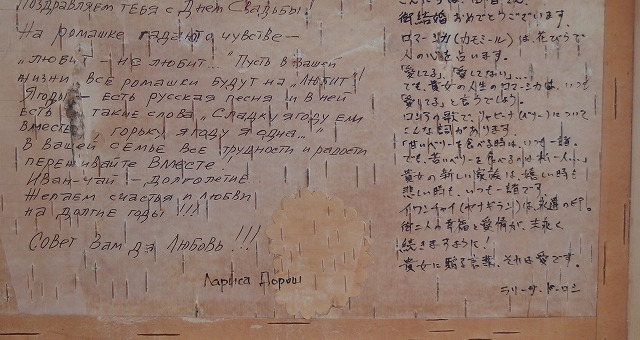 Поздравляем тебя с Днем Свадьбы!
На ромашке гадают о чувстве –
„ЛЮБИТ – НЕ ЛЮБИТ..." Пусть в вашей
жизни все ромашки будут на „ЛЮБИТ"!
Ягоды – есть русская песня и в ней
есть такие слова „Сладку ягоду ели
вместе, горьку ягоду я одна..."
В вашей семье все трудности и радости
переживайте вместе!
Иван-чай – долголетие
Желаем счастья и любви
на долгие годы!!!
Совет вам да Любовь!!!
Лариса Дорош
御結婚おめでとうございます。
ロマーシカ(カモミール)は、花びらで
人の心を占います。
「愛してる」「愛してない」...
でも、貴女の人生のロマーシカは、いつも
「愛してる」と言うでしょう。
ロシアの歌で、リャビーナ(ベリー)について
こんな詞があります。
「甘いベリーを食べる時は、いつも一緒。
でも、苦いベリーを食べるのは私一人...」
貴女の新しい家族は、嬉しい時も
悲しい時も、いつも一緒です
イワンチャイ(ヤナギラン)は、永遠の印。
御二人の幸福と愛情が、末永く
続きますように!
貴女に贈る言葉、それは愛です。
ラリーサ・ドーロシ